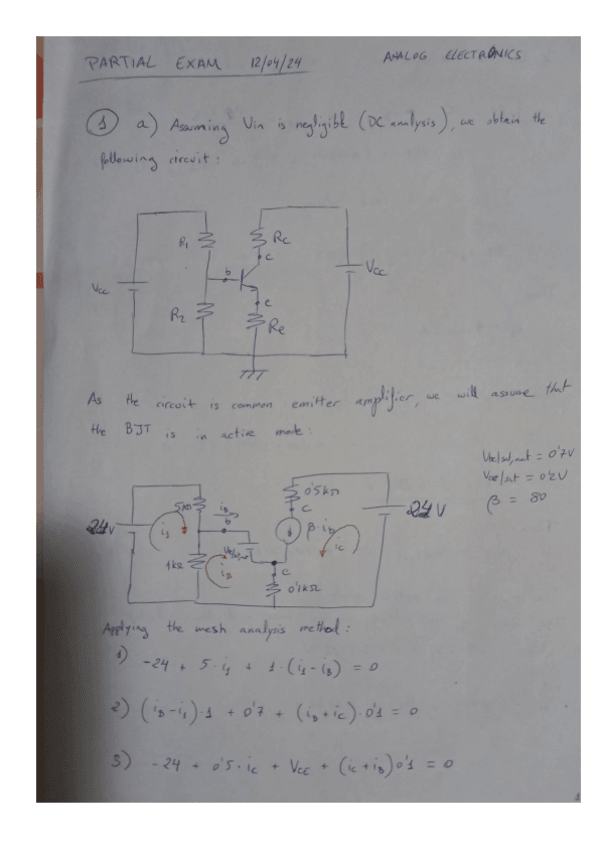 PARTIAL EXAM 12/04/24 ANALOG ELECTRONICS
① a) Assuming Vin is negligible (DC analysis), we obtain the
following circuit:
R1 Rc
c
b
Vcc Vcc
e
R2 Re
As the circuit is common emitter amplifier, we will assume that
the BJT is in active mode:
Vbe/sat,act = 0'7V
Vce/sat = 0'2V
β = 80
0'5kΩ
5kΩ iB c
24V b β·iB 24V
i1 ic
1kΩ iB
0'1kΩ
Applying the mesh analysis method:
1) -24 + 5·i1 + 1·(i1-iB) = 0
2) (iB-i1)·1 + 0'7 + (iB+ic)·0'1 = 0
3) -24 + 0'5·ic + VCE + (ic+iB)0'1 = 0